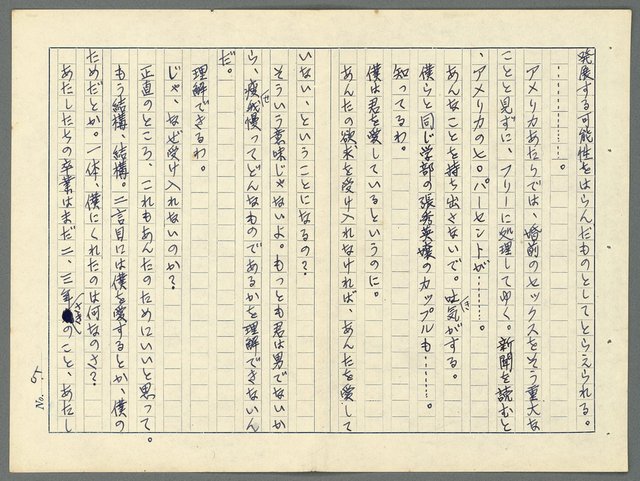 発展する可能性をはらんだものとしてとらえられる。
…………。
アメリカあたりでは、婚前のセックスをそう重大な
ことと見ずに、フリーに処理してゆく。新聞を読むと
、アメリカの七〇パーセントが……。
あんなことを持ち出さないで。吐気がする。
は
僕らと同じ学部の張秀英嬢のカップルも………。
知ってるわ。
僕は君を愛しているというのに。
あんたの欲求を受け入れなければ、あんたを愛して
いない、ということになるの?
そういう意味じゃないよ。もっとも君は男でないか
ら、痩我慢ってどんなものであるかを理解できないん
だ。
理解できるわ。
じゃ、なぜ受け入れないのか?
正直のところ、これもあんたのためにいいと思って。
もう結構、結構。二言目には僕を愛するとか、僕の
ためだとか。一体、僕にくれたのは何なのさ?
あたしたちの卒業はまだ二、三年さきのこと、あたし
No. 5